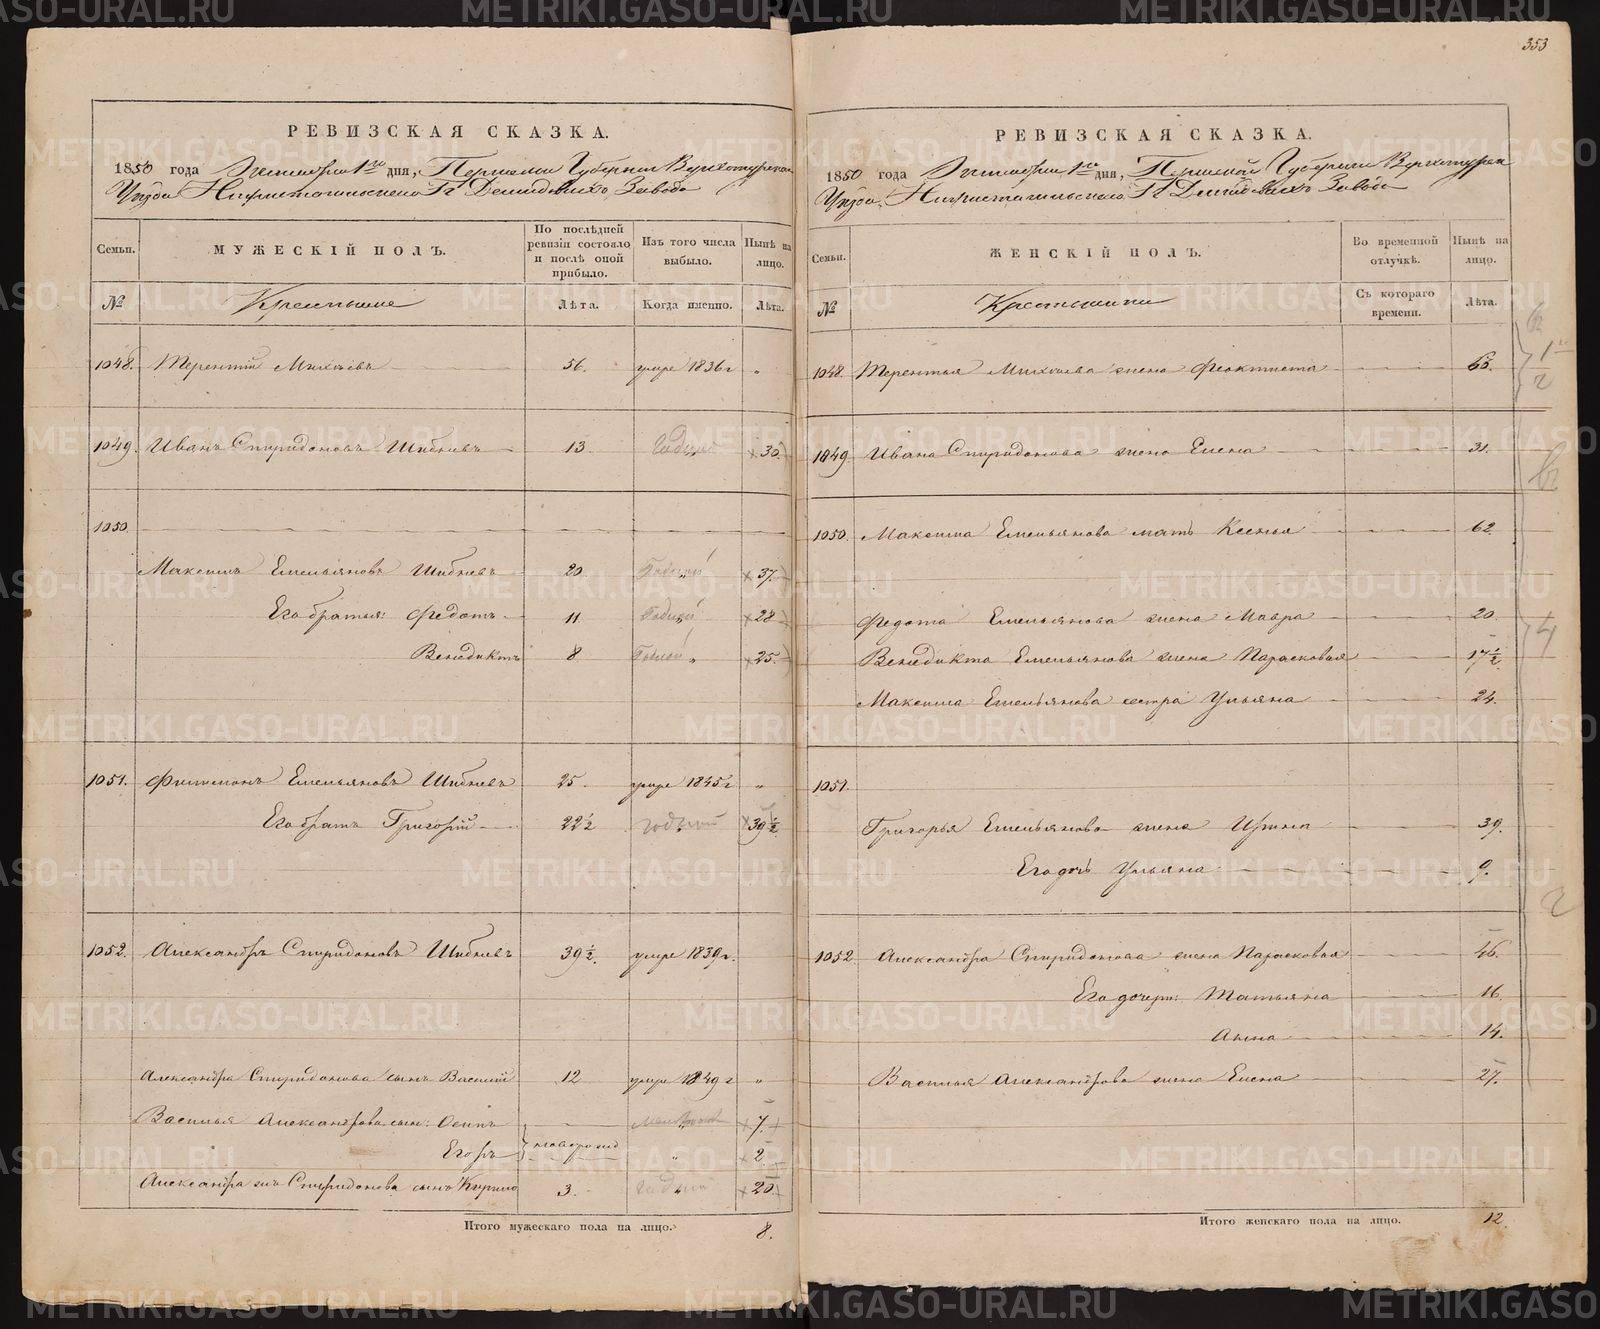 РЕВИЗСКАЯ СКАЗКА.
1850 года Октября 1го дня, Пермской Губернии Верхотурскаго
Уѣзда Нижнетагильскаго Гг Демидовыхъ Завода
Семьи.
МУЖЕСКІЙ ПОЛЪ.
По послѣдней ревизіи состояло и послѣ оной прибыло.
Изъ того числа выбыло.
Нынѣ на лицо.
№
Крестьяне
Лѣта.
Когда именно.
Лѣта.
1048. Терентій Михѣевъ 56. умре 1836 г „
1049. Иванъ Спиридоновъ Шибневъ 13. Годный 30.
1050.
Максимъ Емельяновъ Шибневъ 20 Годный 37.
Его братья: Федотъ 11 Годный 28
Венедиктъ 8 Годный 25.
1051. Филимонъ Емельяновъ Шибневъ 25. умре 1845 г „
Его братъ Григорій 22½ годный 39½.
1052. Александръ Спиридоновъ Шибневъ 39½. умре 1839 г.
Александра Спиридонова сынъ Василій 12 умре 1849 г „
Василья Александрова сын: Осипъ 7.
Егоръ новорожд „ 2.
Александра Спиридонова сынъ Кирило 3. годный 20
Итого мужескаго пола на лицо. 8.
353
РЕВИЗСКАЯ СКАЗКА.
1850 года Октября 1го дня, Пермской Губерніи Верхотурскаго
Уѣзда, Нижнетагильскаго Гг Демидовыхъ Завода
Семьи.
ЖЕНСКІЙ ПОЛЪ.
Во временной отлучкѣ.
Нынѣ на лицо.
№
Крестьянки
Съ котораго времени.
Лѣта.
1048. Терентья Михѣева жена Феоктиста 60.
1049. Ивана Спиридонова жена Елена 31.
1050. Максима Емельянова мать Ксенья 62.
Федота Емельянова жена Мавра 20.
Венедикта Емельянова жена Парасковья 17½.
Максима Емельянова сестра Ульяна 24.
1051.
Григорья Емельянова жена Ирина 39.
Его дочь Ульяна 9.
1052. Александра Спиридонова жена Парасковья 46.
Его дочери: Татьяна 16.
Анна 14.
Василья Александрова жена Елена 27.
Итого женскаго пола на лицо. 12.
METRIKI.GASO-URAL.RU